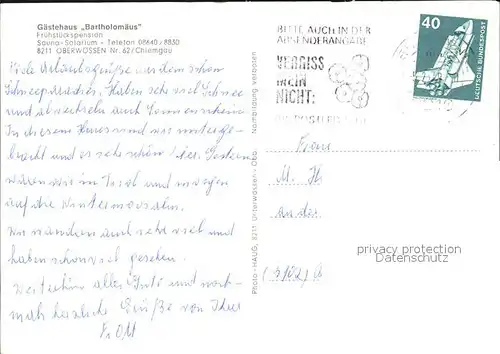 Gästehaus „Bartholomäus"
Frühstückspension
Sauna-Solarium - Telefon 08640/8830
8211 OBERWÖSSEN Nr. 62/Chiemgau
Viele Urlaubsgrüße aus dem schönen
Schneeparadies. Haben sehr viel Schnee
und abwechseln auch Sonnenschein
In diesem Haus sind wir unterge-
bracht und es sehr schön hier. Gestern
waren wir im Tirol und morgen
auf die
Wir wandern auch sehr viel und
haben schon viel gesehen.
Weiterhin alles Gute und noch-
mals herzliche Grüße von Ihrer
Photo-HAUG, 8211 Unterwössen-Obb.
Nachbildung verboten
BITTE, AUCH IN DER
ABSENDERANGABE
VERGISS
MEIN
NICHT:
DIE POSTLEITZAHL
40
DEUTSCHE BUNDESPOST
Frau
M. Th
an der
privacy protection
Datenschutz